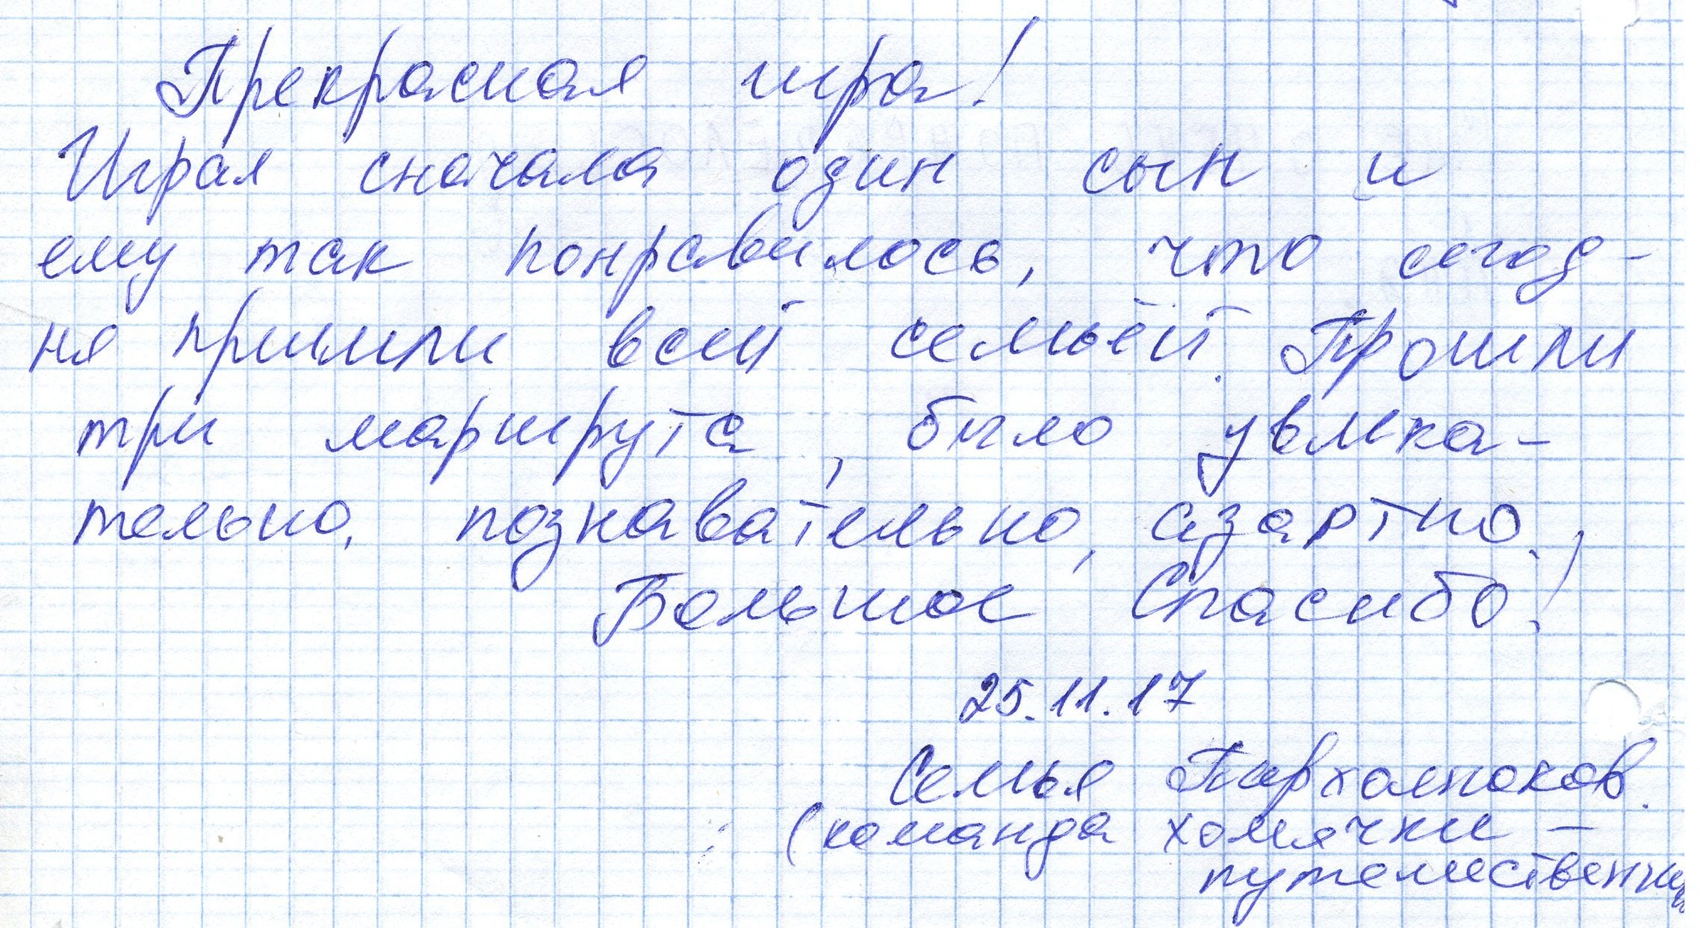 Прекрасная игра!
Играл сначала один сын и
ему так понравилось, что сегод-
ня пришли всей семьёй. Прошли
три маршрута, было увлека-
тельно, познавательно, азартно.
Большое Спасибо!
25.11.17
Семья
(команда хомячки -
путешественники